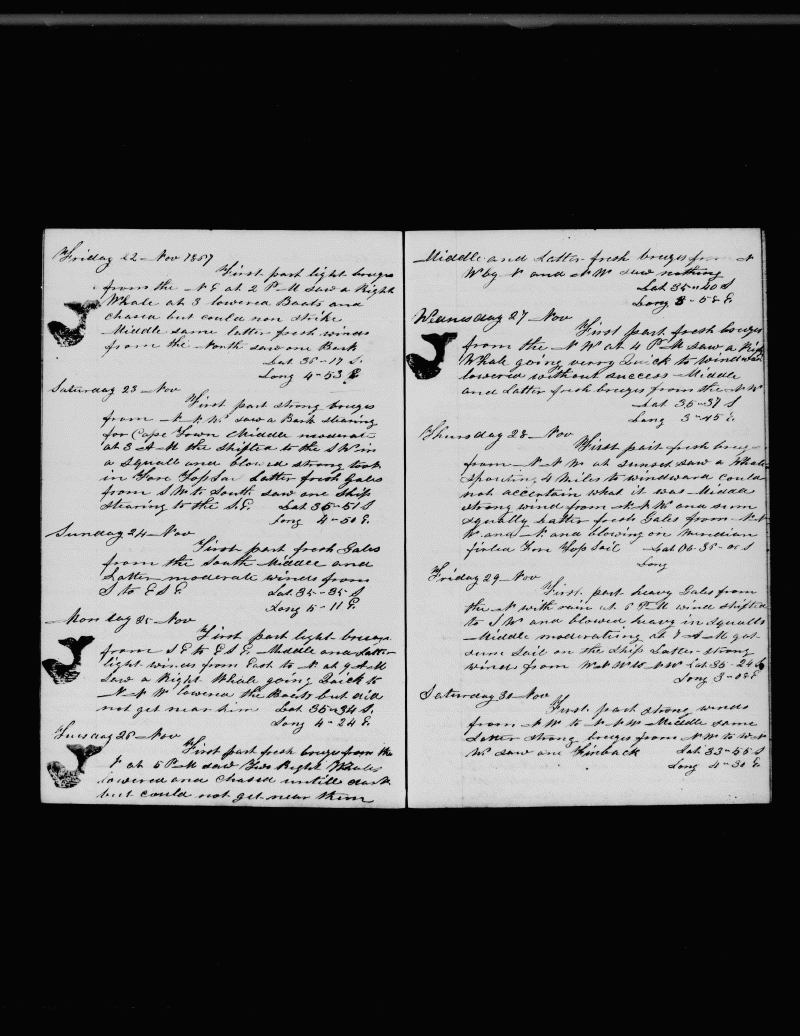 Friday 22 Nov 1867
First part light breezes
from the N E at 2 P M saw a Right
Whale at 3 lowered Boats and
chased but could non strike
Middle same latter fresh winds
from the North saw one Bark
Lat 36-17 S.
Long 4-53 E
Saturday 23 Nov
First part strong breezes
from N N W. saw a Bark stearing
for Cape Town Middle moderat
at 3 A M the shifted to the S W in
a squall and blowed strong took
in Fore Top Sail Latter fresh Gales
from S W to South saw one Ship
stearing to the S. E. Lat 35-51 S
Long 4-50 E.
Sunday 24 Nov
First part fresh Gales
from the South Middle and
Latter moderate winds from
S to E S E. Lat 35-35 S
Long 5-11 E.
Monday 25 Nov
First part light breezes
from S E to E S E. Middle and Latter
light winds from East to N at 9 A M
saw a Right Whale going Quick to
N N W lowered the Boats but did
not get near him Lat 35-34 S.
Long 4-24 E.
Tuesday 26 Nov
First part fresh breezes from the
N at 5 P M saw Two Right Whales
lowered and Chased untill dark
but could not get near them
Middle and Latter fresh breezes from N
W by N and N W saw nothing
Lat 35-40 S
Long 3-58 E.
Wednesday 27 Nov
First part fresh breezes
from the N W at 4 P M saw a Right
Whale going verry Quick to windward
lowered without success Middle
and Latter fresh breezes from the N W
Lat 35-37 S
Long 3-45 E.
Thursday 28 Nov
First part fresh breez
from N N W at sunset saw a Whale
spouting 4 Miles to windward could
not accertain what it was Middle
strong wind from N N W and
squally Latter fresh Gales from N N
W. and N. and blowing on Meridian
firled Fore Top Sail Lat 36-36-00 S
Long
Friday 29 Nov
First part heavy Gales from
the N with rain at 6 P M wind shifted
to S W and blowed heavy in squalls
Middle moderating at 7 A M got
sum Sail on the Ship Latter strong
winds from W N W N W Lat 35-24
Long 3-08 E
Saturday 30 Nov
First part strong winds
from N W to N N W Middle same
Latter strong breezes from N W to W N
W. saw one Finback Lat 33-55 S
Long 4-30 E.